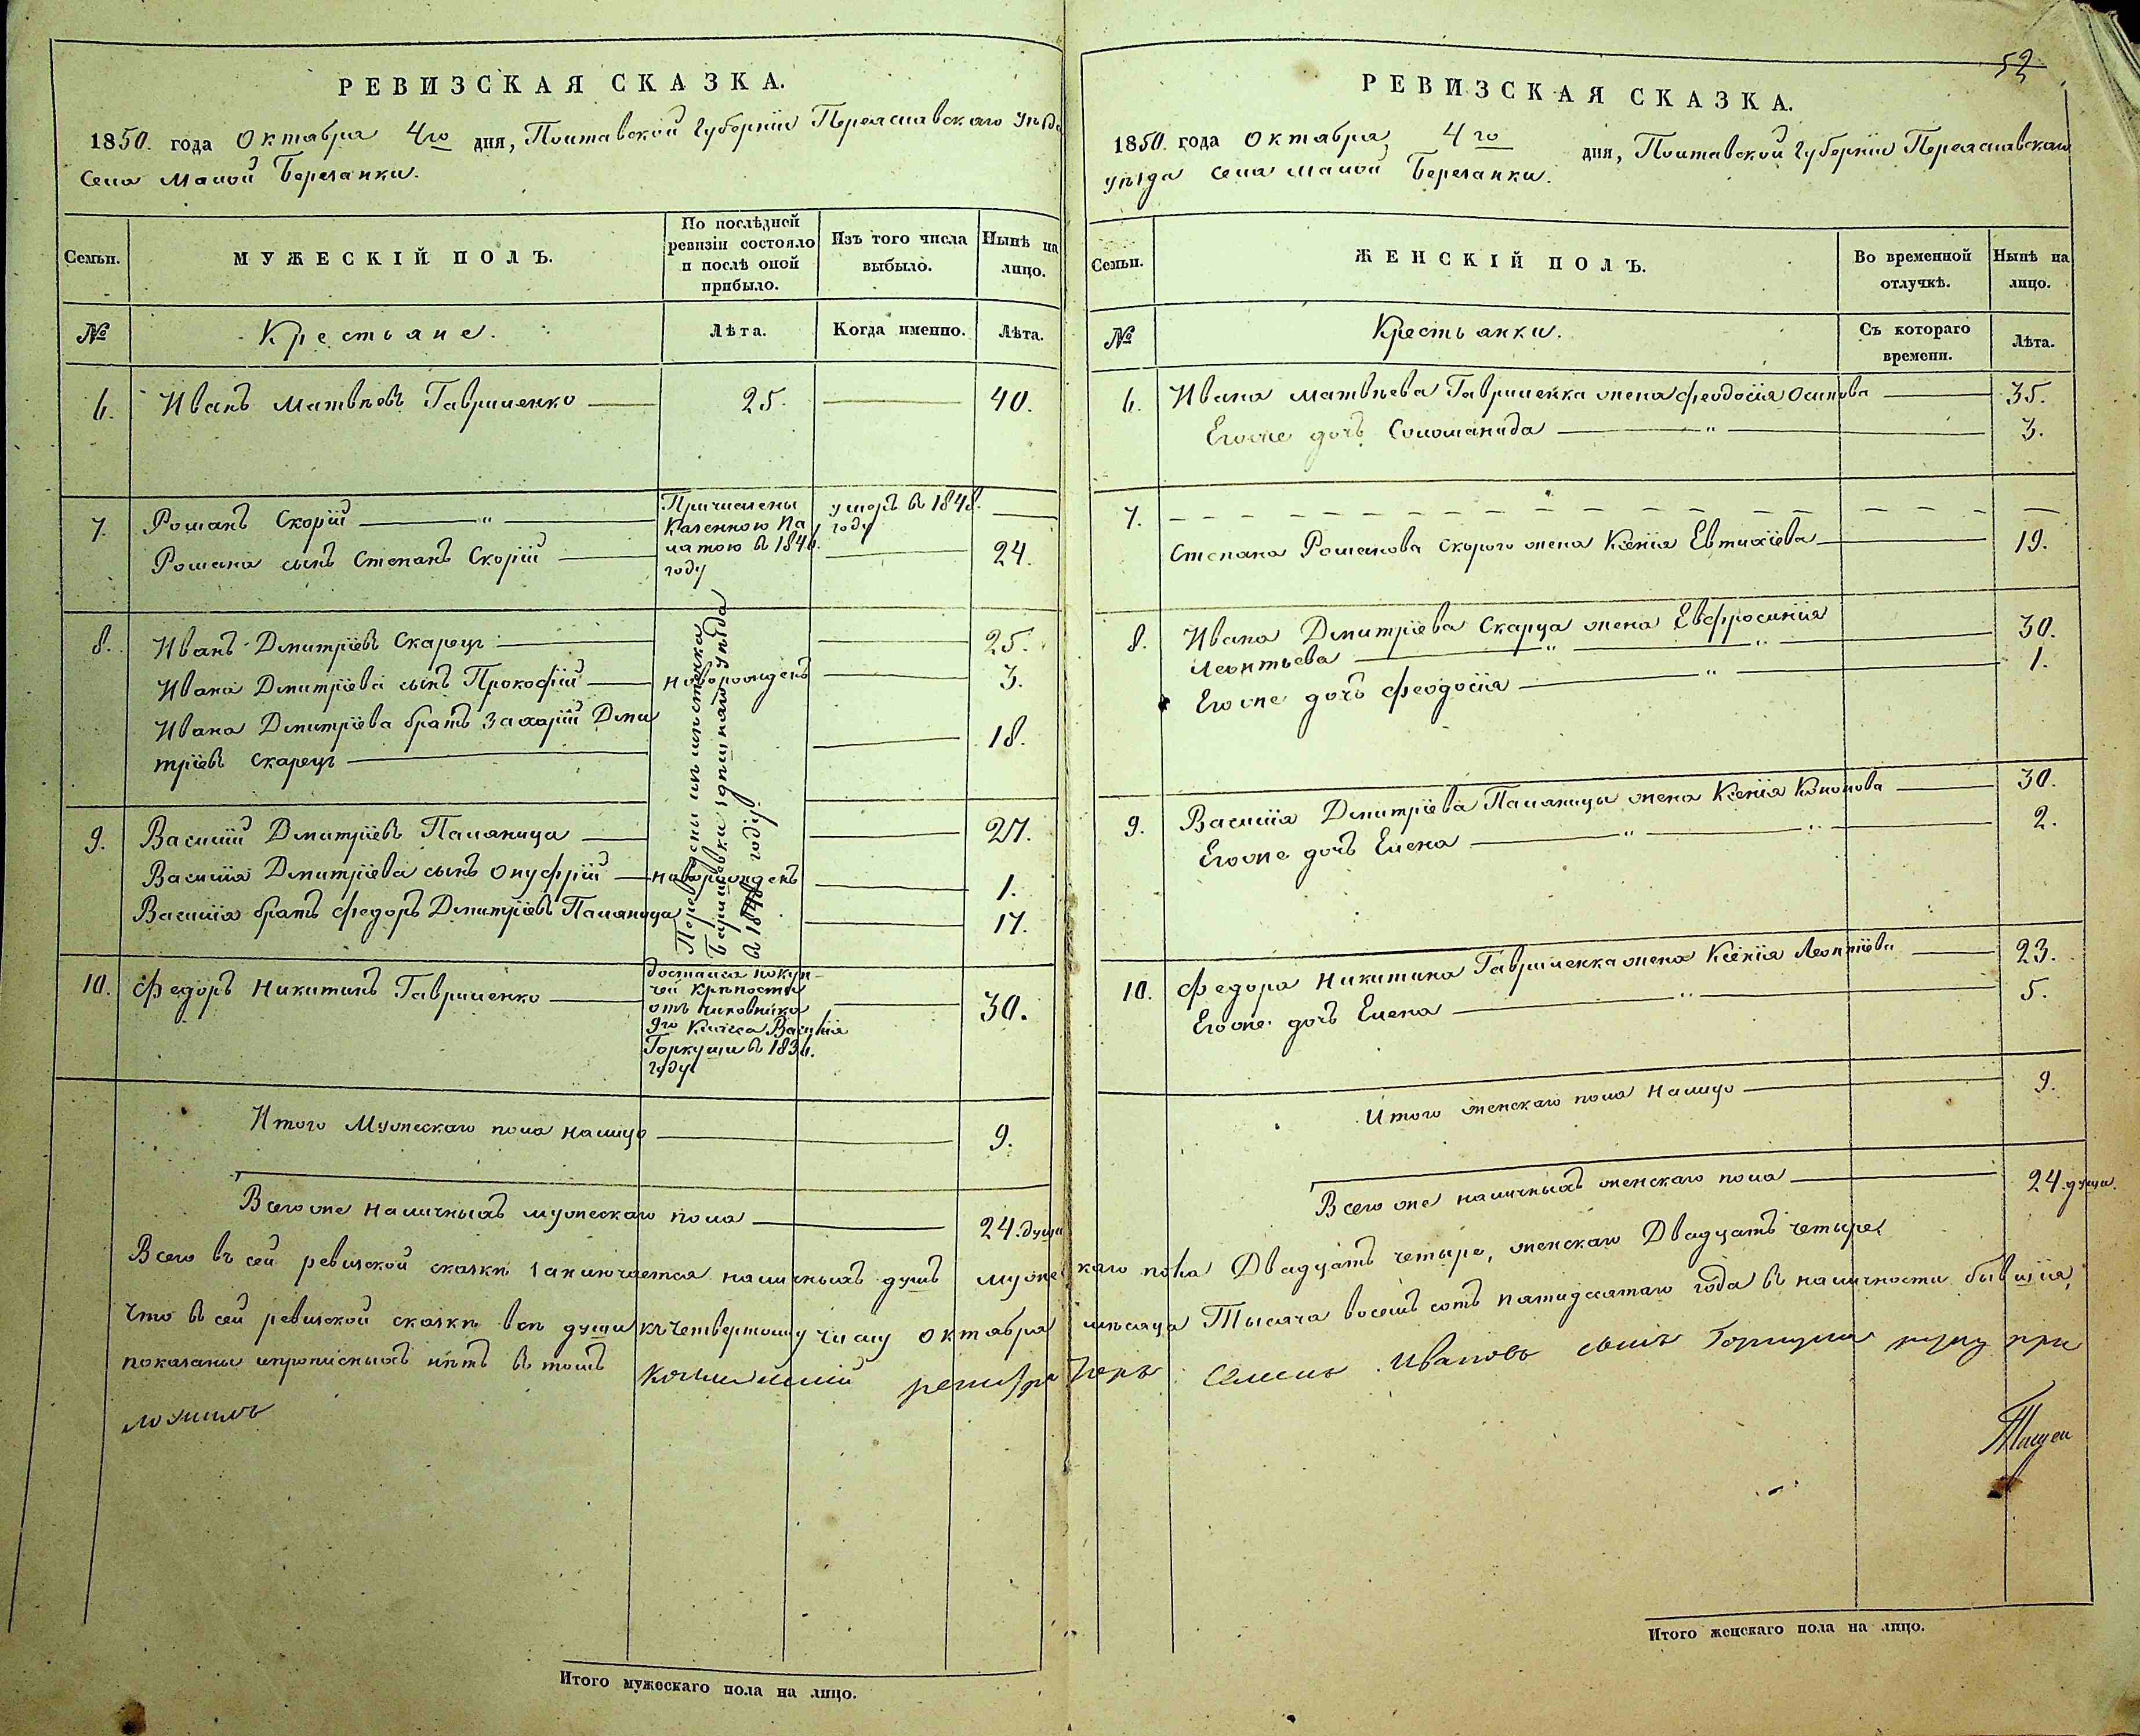 РЕВИЗСКАЯ СКАЗКА.
1850. года Октября 4го дня, Полтавской Губернїи Переяславскаго Уѣзда
Села Малой Березанки.
Семьи.
МУЖЕСКІЙ ПОЛЪ.
По послѣдней ревизіи состояло и послѣ оной прибыло.
Изъ того числа выбыло.
Нынѣ на лицо.
№
Крестьяне.
Лѣта.
Когда именно.
Лѣта.
6. Иванъ Матвѣевъ Гавриленко 25. 40.
7. Романъ Скорїй
Причислены Казенною Палатою въ 184 году
умеръ въ 1848. году
Романа сынъ Степанъ Скорїй 24.
8. Иванъ Дмитрїевъ Скарецъ 25.
Ивана Дмитрїева сынъ Прокофїй новорожденъ 3.
Ивана Дмитрїева братъ Захарїй Дми
трїевъ Скарецъ 18.
Переведены изъ мѣстечка
Барышевки здѣшнаго уѣзда
въ году.
9. Василїй Дмитрїевъ Паляница 27.
Василїя Дмитрїева сынъ Онуфрїй новорожденъ 1.
Василїя братъ Федоръ Дмитрїевъ Паляница 17.
10. Федоръ Никитинъ Гавриленко 30.
Достался по куп-
чей крѣпости
отъ чиновника
9го Класса Василїя
Горкуши въ 183
году
Итого Мужескаго пола налицо 9.
Всего же наличныхъ мужескаго пола 24. души
Итого мужескаго пола на лицо.
52
РЕВИЗСКАЯ СКАЗКА.
1850. года Октября 4го дня, Полтавской Губернїи Переяславскаго
уѣзда Села Малой Березанки.
Семьи.
ЖЕНСКІЙ ПОЛЪ.
Во временной отлучкѣ.
Нынѣ на лицо.
№
Крестьянки.
Съ котораго времени.
Лѣта.
6. Ивана Матвѣева Гавриленка жена Феодосїя Осипова 35.
Егоже дочь Соломанида 3.
7.
Степана Романова Скорого жена Ксенїя Евтихїева 19.
8. Ивана Дмитрїева Скарца жена Евфросинїя
Леонтьева 30.
Егоже дочь Феодосїя 1.
9. Василїя Дмитрїева Паляницы жена Ксенїя Кононова 30.
Егоже дочь Елена 2.
10. Федора Никитина Гавриленка жена Ксенїя Леонтїева 23.
Егоже дочь Елена 5.
Итого женскаго пола налицо 9.
Всего же наличныхъ женскаго пола 24. души.
Всего въ сей ревизской сказкѣ заключается наличныхъ душъ мужескаго пола Двадцать четыре, женскаго Двадцать четыре,
Что въ сей ревизской сказкѣ всѣ души къ четвертому числу октября мѣсяца Тысяча восемь сотъ пятидесятаго года въ наличности бывшїя,
показаны и прописныхъ нѣтъ въ томъ Колежскїй регистраторъ Семенъ Ивановъ сынъ Горкуша руку при
ложилъ
Итого женскаго пола на лицо.